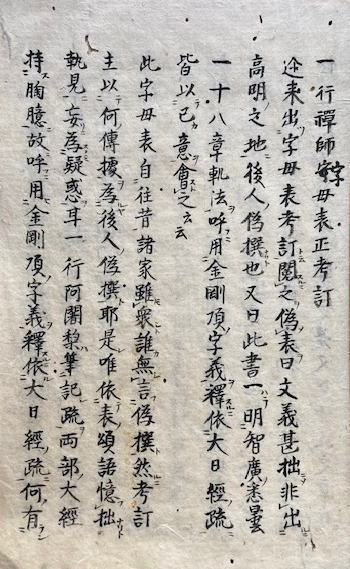 一行禪師字母表正考訂
迩来出字母表考訂閲之偽表曰文義甚拙非出
高明之地後人偽撰也又曰此書一明智廣悉曇
一十八章軌法呼用金剛頂字義釋依大日經疏
皆以已意會之云云
此字母表自往昔諸家雖衆誰無言偽撰然考訂
主以何傳據為後人偽撰耶是唯依表頌語憶拙
執見妄為疑惑耳一行阿闍梨筆記疏両部大經
持胸臆故呼用金剛頂字義釋依大日經疏何有